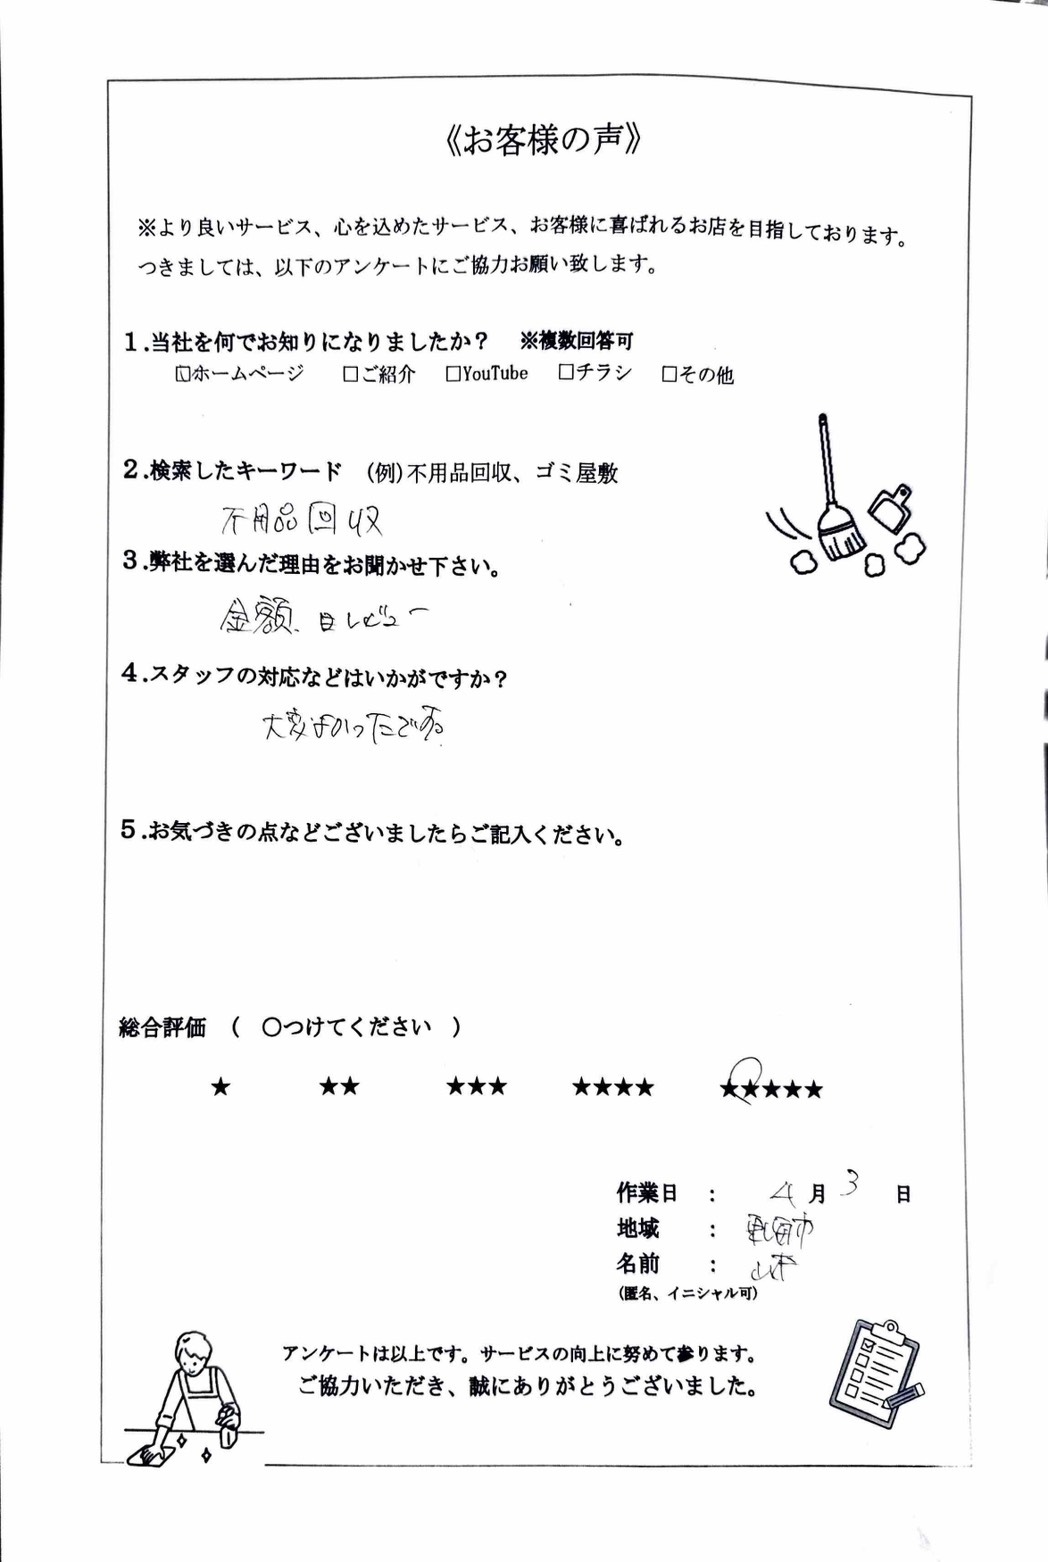 《お客様の声》
※より良いサービス、心を込めたサービス、お客様に喜ばれるお店を目指しております。
つきましては、以下のアンケートにご協力お願い致します。
1.当社を何でお知りになりましたか？ ※複数回答可
☑ホームページ □ご紹介 □YouTube □チラシ □その他
2.検索したキーワード (例)不用品回収、ゴミ屋敷
不用品回収
3.弊社を選んだ理由をお聞かせ下さい。
金額、口レビュー
4.スタッフの対応などはいかがですか？
大変よかったです
5.お気づきの点などございましたらご記入ください。
総合評価 （ ○つけてください ）
★ ★★ ★★★ ★★★★ ★★★★★
作業日 ： 4月3日
地域 ： 東海市
名前 ：
(匿名、イニシャル可)
アンケートは以上です。サービスの向上に努めて参ります。
ご協力いただき、誠にありがとうございました。